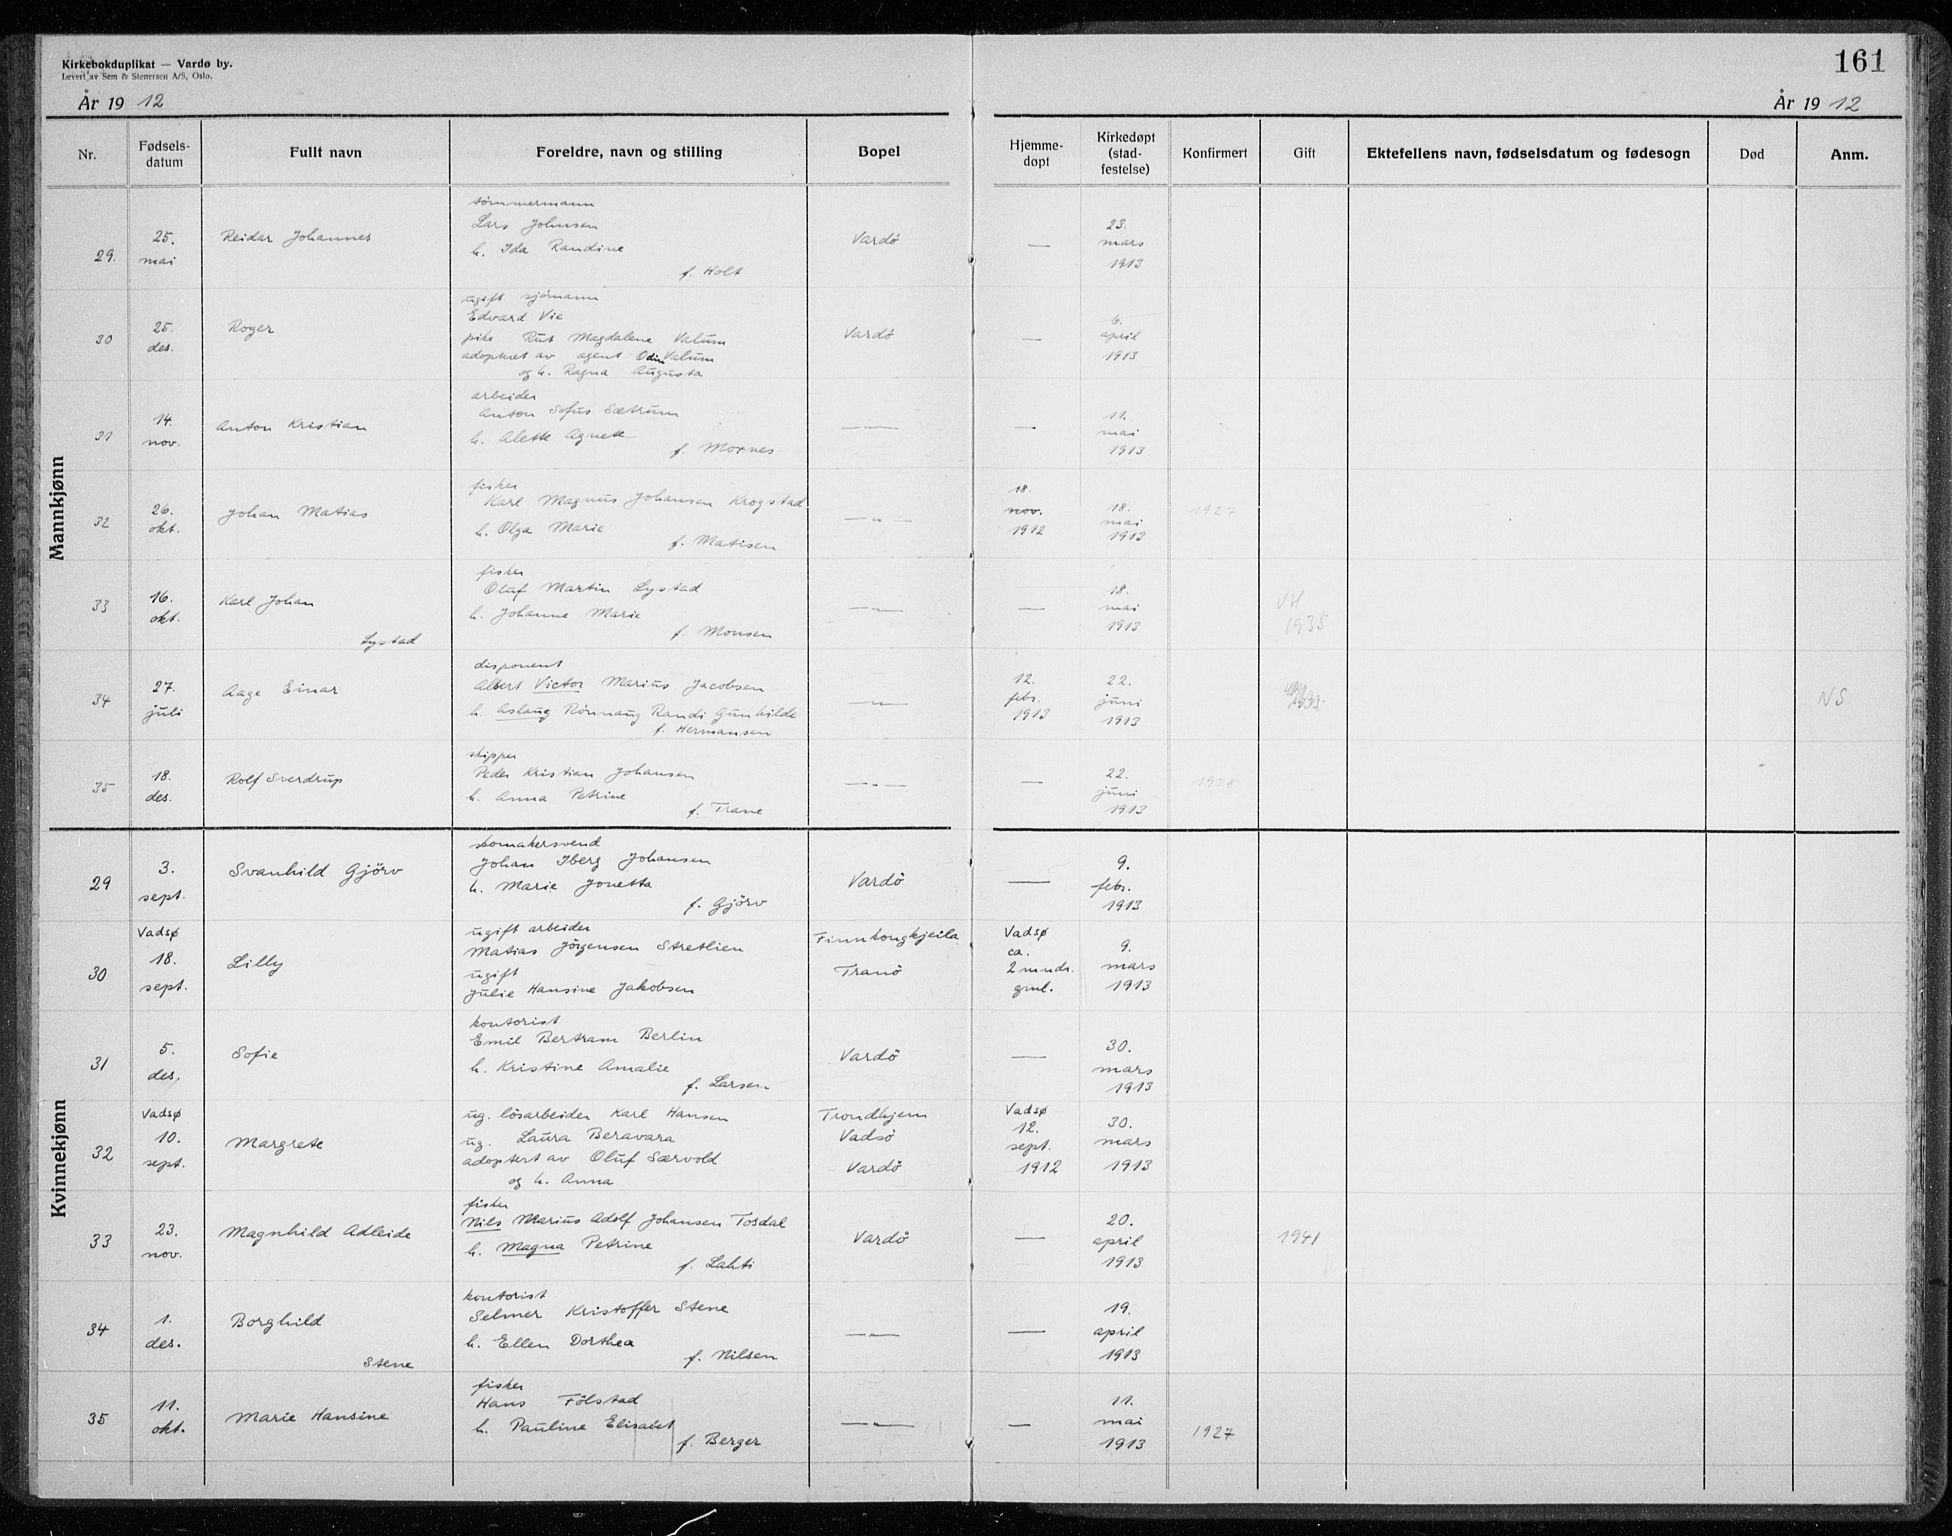 Kirkebokduplikat — Vardø by.
Levert av Sem & Stenersen A/S, Oslo.
161
År 1912
År 1912
Nr. Fødselsdatum Fullt navn Foreldre, navn og stilling Bopel Hjemmedøpt Kirkedøpt (stadfestelse) Konfirmert Gift Ektefellens navn, fødselsdatum og fødesogn Død Anm.
Mannkjønn
tømmermann
Lars Johnsen
29. 25. mai Reidar Johannes h. Ida Randine Vardö — 23. mars 1913
f. Holt
ugift sjömann
Edvard Vie
30 25. des. Roger pike Rut Magdalene Valum Vardö — 6. april 1913
adoptert av agent Odin Valum
og h. Ragna Augusta
arbeider
Anton Sofus Sætrum
31 14. nov. Anton Kristian h. Alette Agnete —"— — 11. mai 1913
f. Mornes
fisker
Karl Magnus Johansen Krogstad
32 26. okt. Johan Matias h. Olga Marie —"— 18. nov. 1912 18. mai 1913 1927
f. Matisen
fisker
Oluf Martin Lystad
33 16. okt. Karl Johan Lystad h. Johanne Marie —"— — 18. mai 1913 VH 1935
f. Monsen
disponent
Albert Victor Marius Jacobsen
34 27. juli Aage Einar h. Aslaug Rønnaug Randi Gunhilde —"— 12. febr. 1913 22. juni 1913 NS
f. Hermansen
skipper
Peder Kristian Johansen
35 18. des. Rolf Sverdrup h. Anna Petrine —"— — 22. juni 1913 1928
f. Trane
Kvinnekjønn
skomakersvend
Johan Iberg Johansen
29 3. sept. Svanhild Gjörv h. Marie Jonetta Vardö — 9. febr. 1913
f. Gjörv
ugift arbeider
Matias Jörgensen Stretlien Finnkongkjeila
30 Vadsø 18. sept. Lilly ugift Tranö Vadsø ca. 2 mndr. gml. 9. mars 1913
Julie Hansine Jakobsen
kontorist
Emil Bertram Berlin
31 5. des. Sofie h. Kristine Amalie Vardö — 30. mars 1913
f. Larsen
ug. lösarbeider Karl Hansen Trondhjem
32 Vadsø 10. sept. Margrete ug. Laura Beravara Vadsö Vadsø 12. sept. 1912 30. mars 1913
adoptert av Oluf Særvold Vardö
og h. Anna
fisker
Nils Marius Adolf Johansen Tosdal
33 23. nov. Magnhild Adleide h. Magna Petrine Vardö — 20. april 1913 1941
f. Lahti
kontorist
Selmer Kristoffer Stene
34 1. des. Borghild Stene h. Ellen Dorthea —"— — 19. april 1913
f. Nilsen
fisker
Hans Fölstad
35 11. okt. Marie Hansine h. Pauline Elisabet —"— — 11. mai 1913 1927
f. Berger